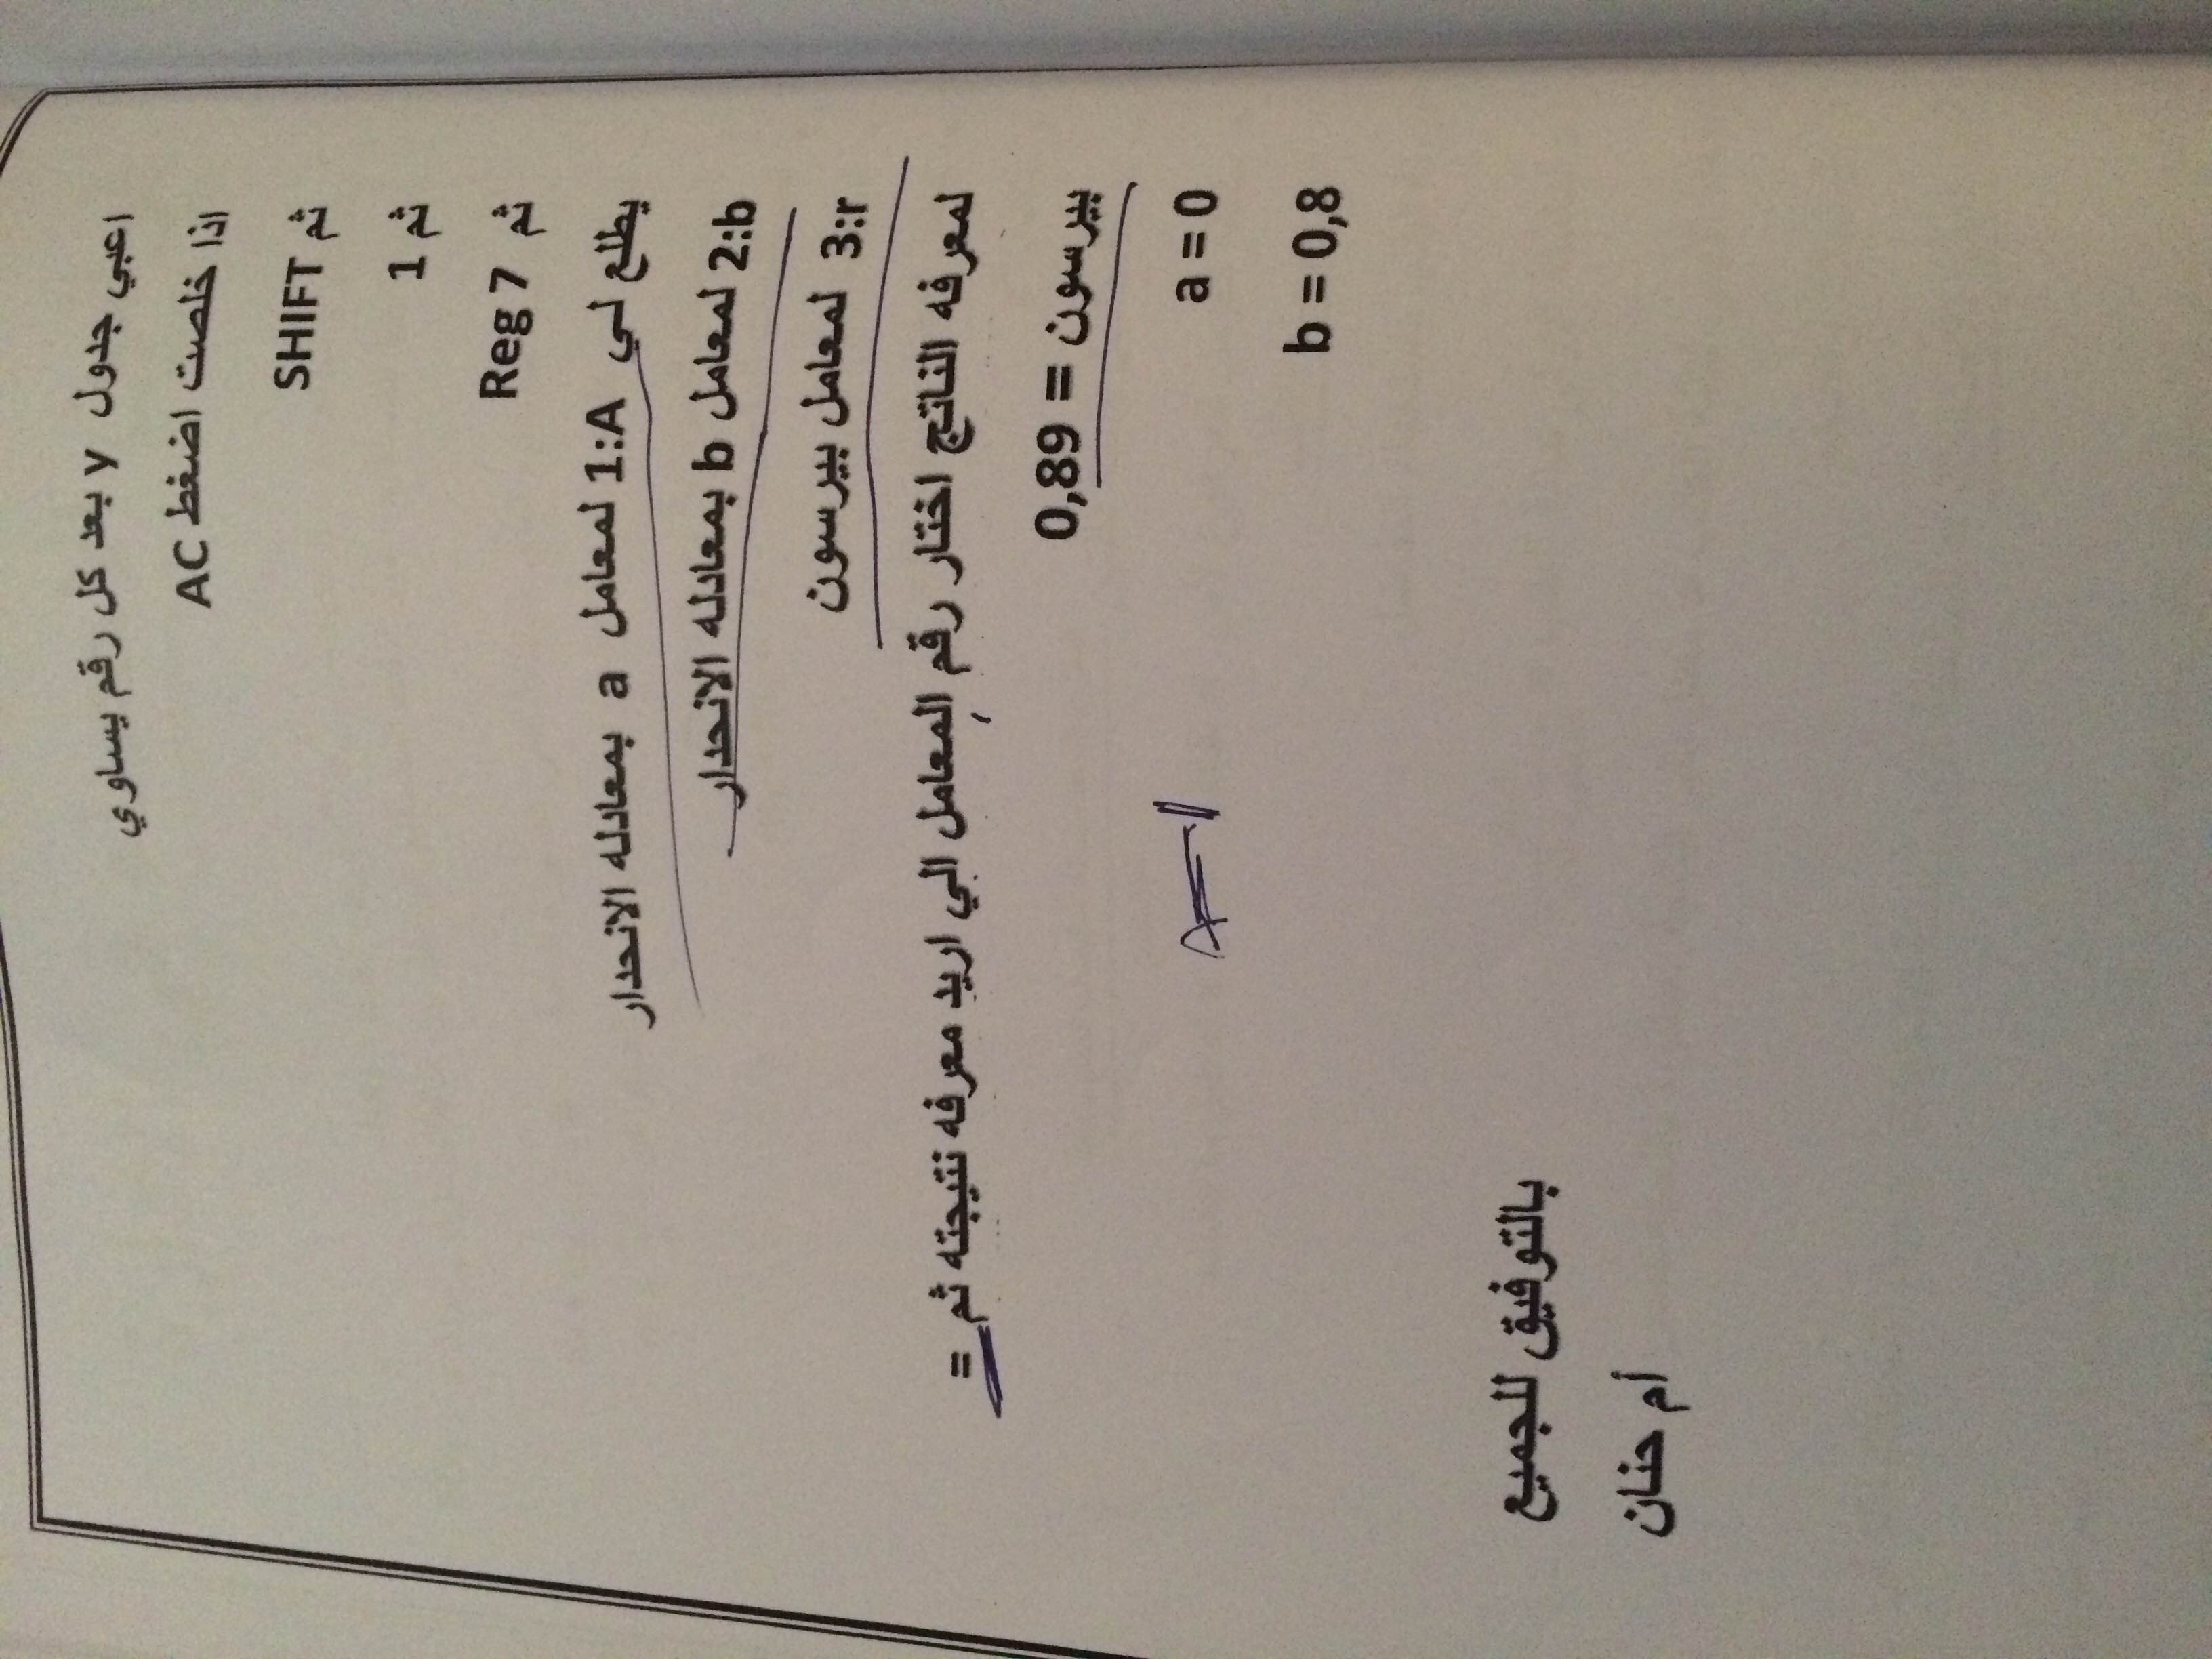 اعبي جدول y بعد كل رقم يساوي
اذا خلصت اضغط AC
ثم SHIFT
ثم 1
ثم Reg 7
يطلع لي 1:A لمعامل a بمعادله الانحدار
2:b لمعامل b بمعادله الانحدار
3:r لمعامل بيرسون
لمعرفه الناتج اختار رقم المعامل الي اريد معرفه نتيجته ثم =
بيرسون = 0,89
a = 0
b = 0,8
بالتوفيق للجميع
أم حنان